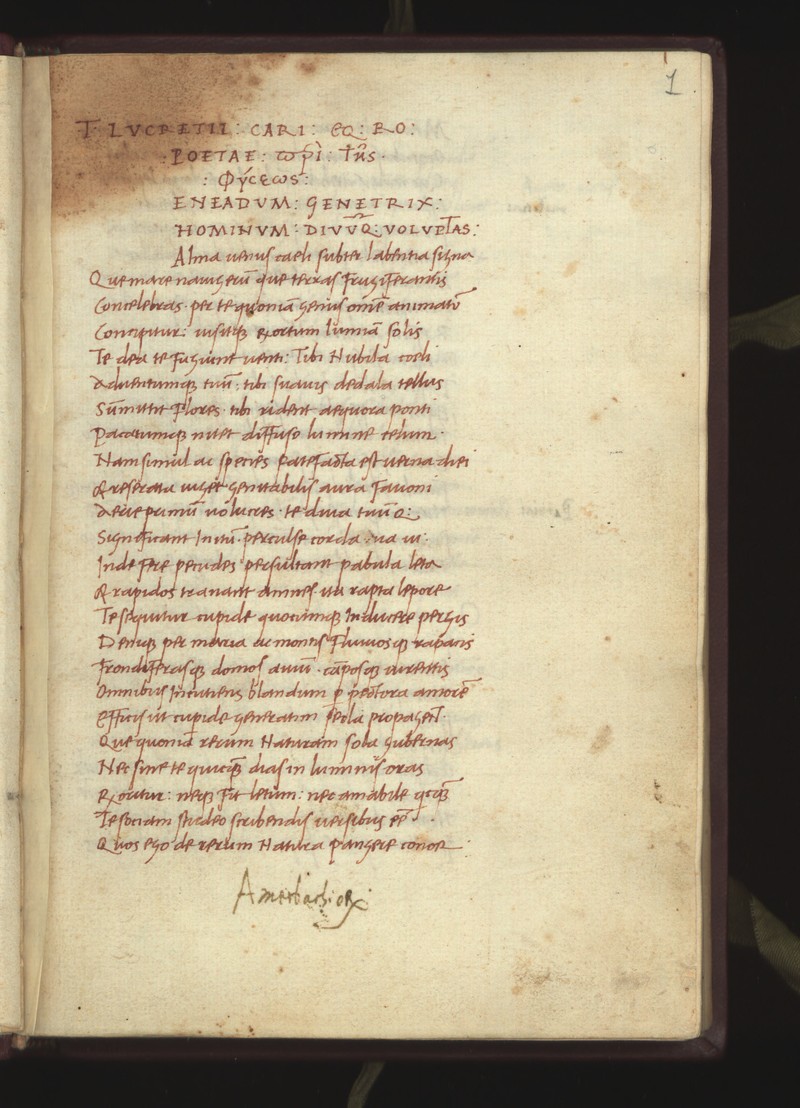 1
T. LVCRETII: CARI: EQ: RO:
:POETAE: ωρì: Tũs·
: Φύσεωs:
ENEADVM: GENETRIX:
HOMINVM: DIVVQ: VOLVPTAS:
Alma uenus caeli subter labentia signa
Que mare nauigerū que terras frugiferantis
Concelebras· per te quoniā genus omē animatū
Concipitur: uisitq; exortum lumiā solis
Te dea te fugiunt uenti: Tibi Nubila coeli
Aduentumq; tuū: tibi suauis dedala tellus
Sūmittit flores· tibi rident aequora ponti
Pacatumq; nitet diffuso lumine celum·
Nam simul ac species patefacta est uerna diei
& reserata uiget genitabilis aura fauoni
Aerie primū uolucres· te diua tuūQ:
Significant Initū· perculse corda tua ui:
Inde fere pecudes persultant pabula leta
& rapidos tranant amnes· ita rapta lepore
Te sequitur cupide quocumq; Inducere pergis
Deniq; per maria ac montis fluuiosq; rapacis
Frondiferasq; domos auiū· cāposq; uirentis
Omnibus Incutiens blandum p pectora amorē
Efficis ut cupide generatim secla propagent·
Que quoniā rerum Naturam sola gubernas
Nec sine te quicq̄ dias in luminis oras
Exoritur: neq; fit letum: nec amabile qcq̄
Te sociam studeo scribendis uersibus eē·
Quos ego de rerum Natura pangere conor
Amerbachior